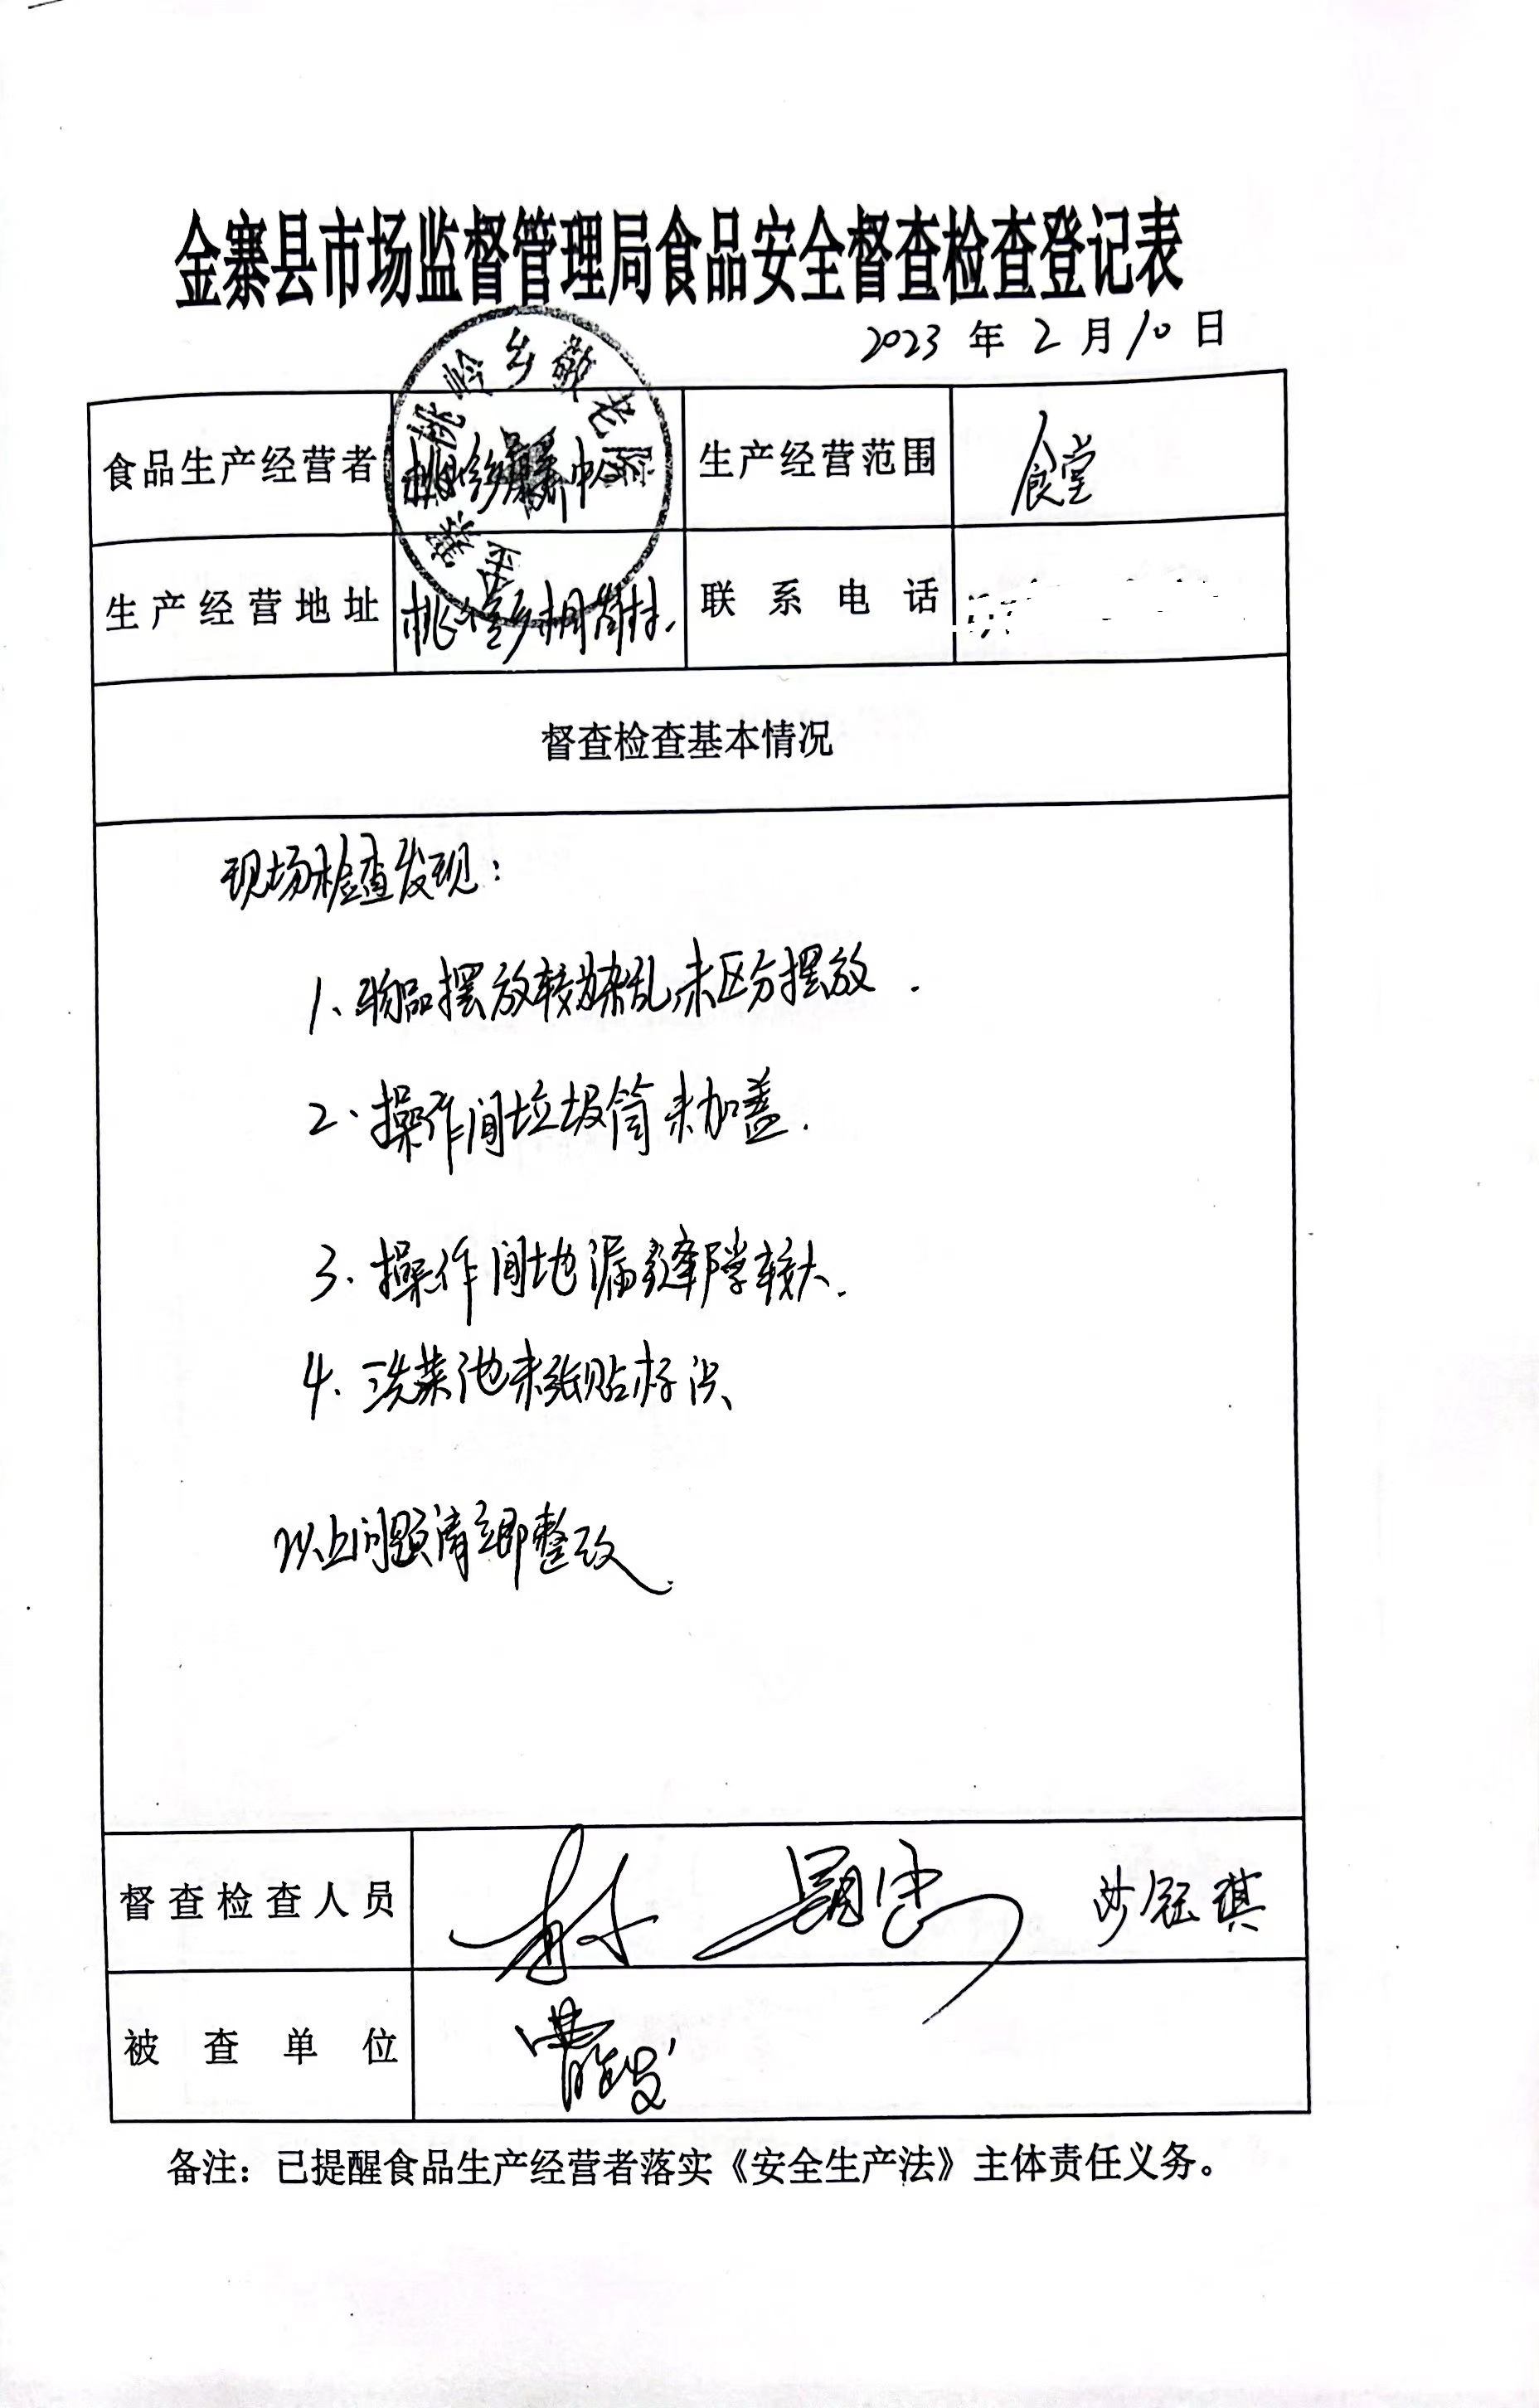 金寨县市场监督管理局食品安全督查检查登记表
2023年2月10日
食品生产经营者 桃岭乡 中心 生产经营范围 食堂
金寨县桃岭乡敬老院
生产经营地址 桃岭乡桐岗村. 联系电话
督查检查基本情况
现场检查发现:
1、物品摆放较为杂乱,未区分摆放.
2.操作间垃圾筒未加盖.
3.操作间地漏缝隙较大.
4.洗菜池未张贴标识
以上问题请立即整改.
督查检查人员
被查单位
备注:已提醒食品生产经营者落实《安全生产法》主体责任义务。